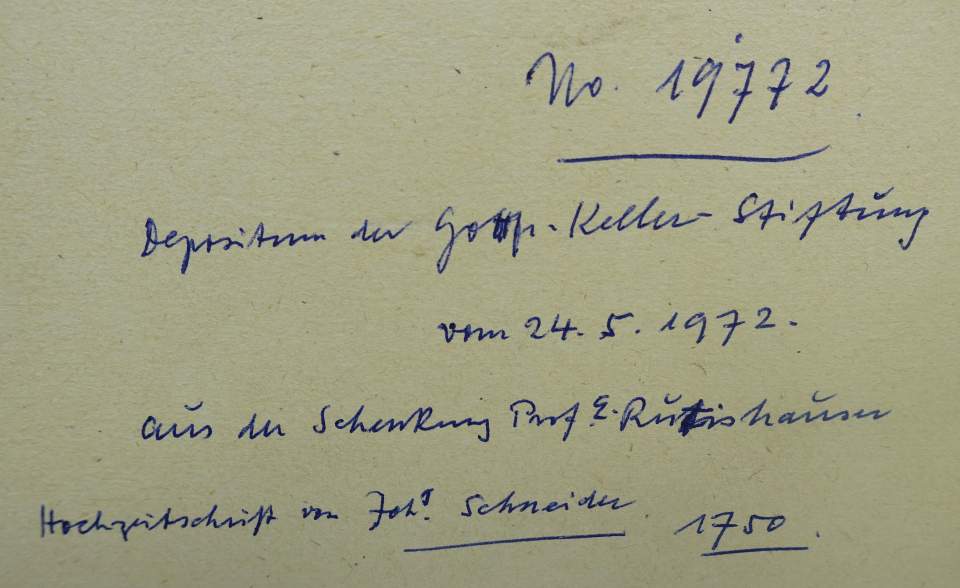 No. 19772
Depositum der Gottf.-Keller-Stiftung
vom 24.5.1972.
aus der Schenkung Prof. E. Rutishauser
Hochzeitschrift von Joh. Schneider 1750.